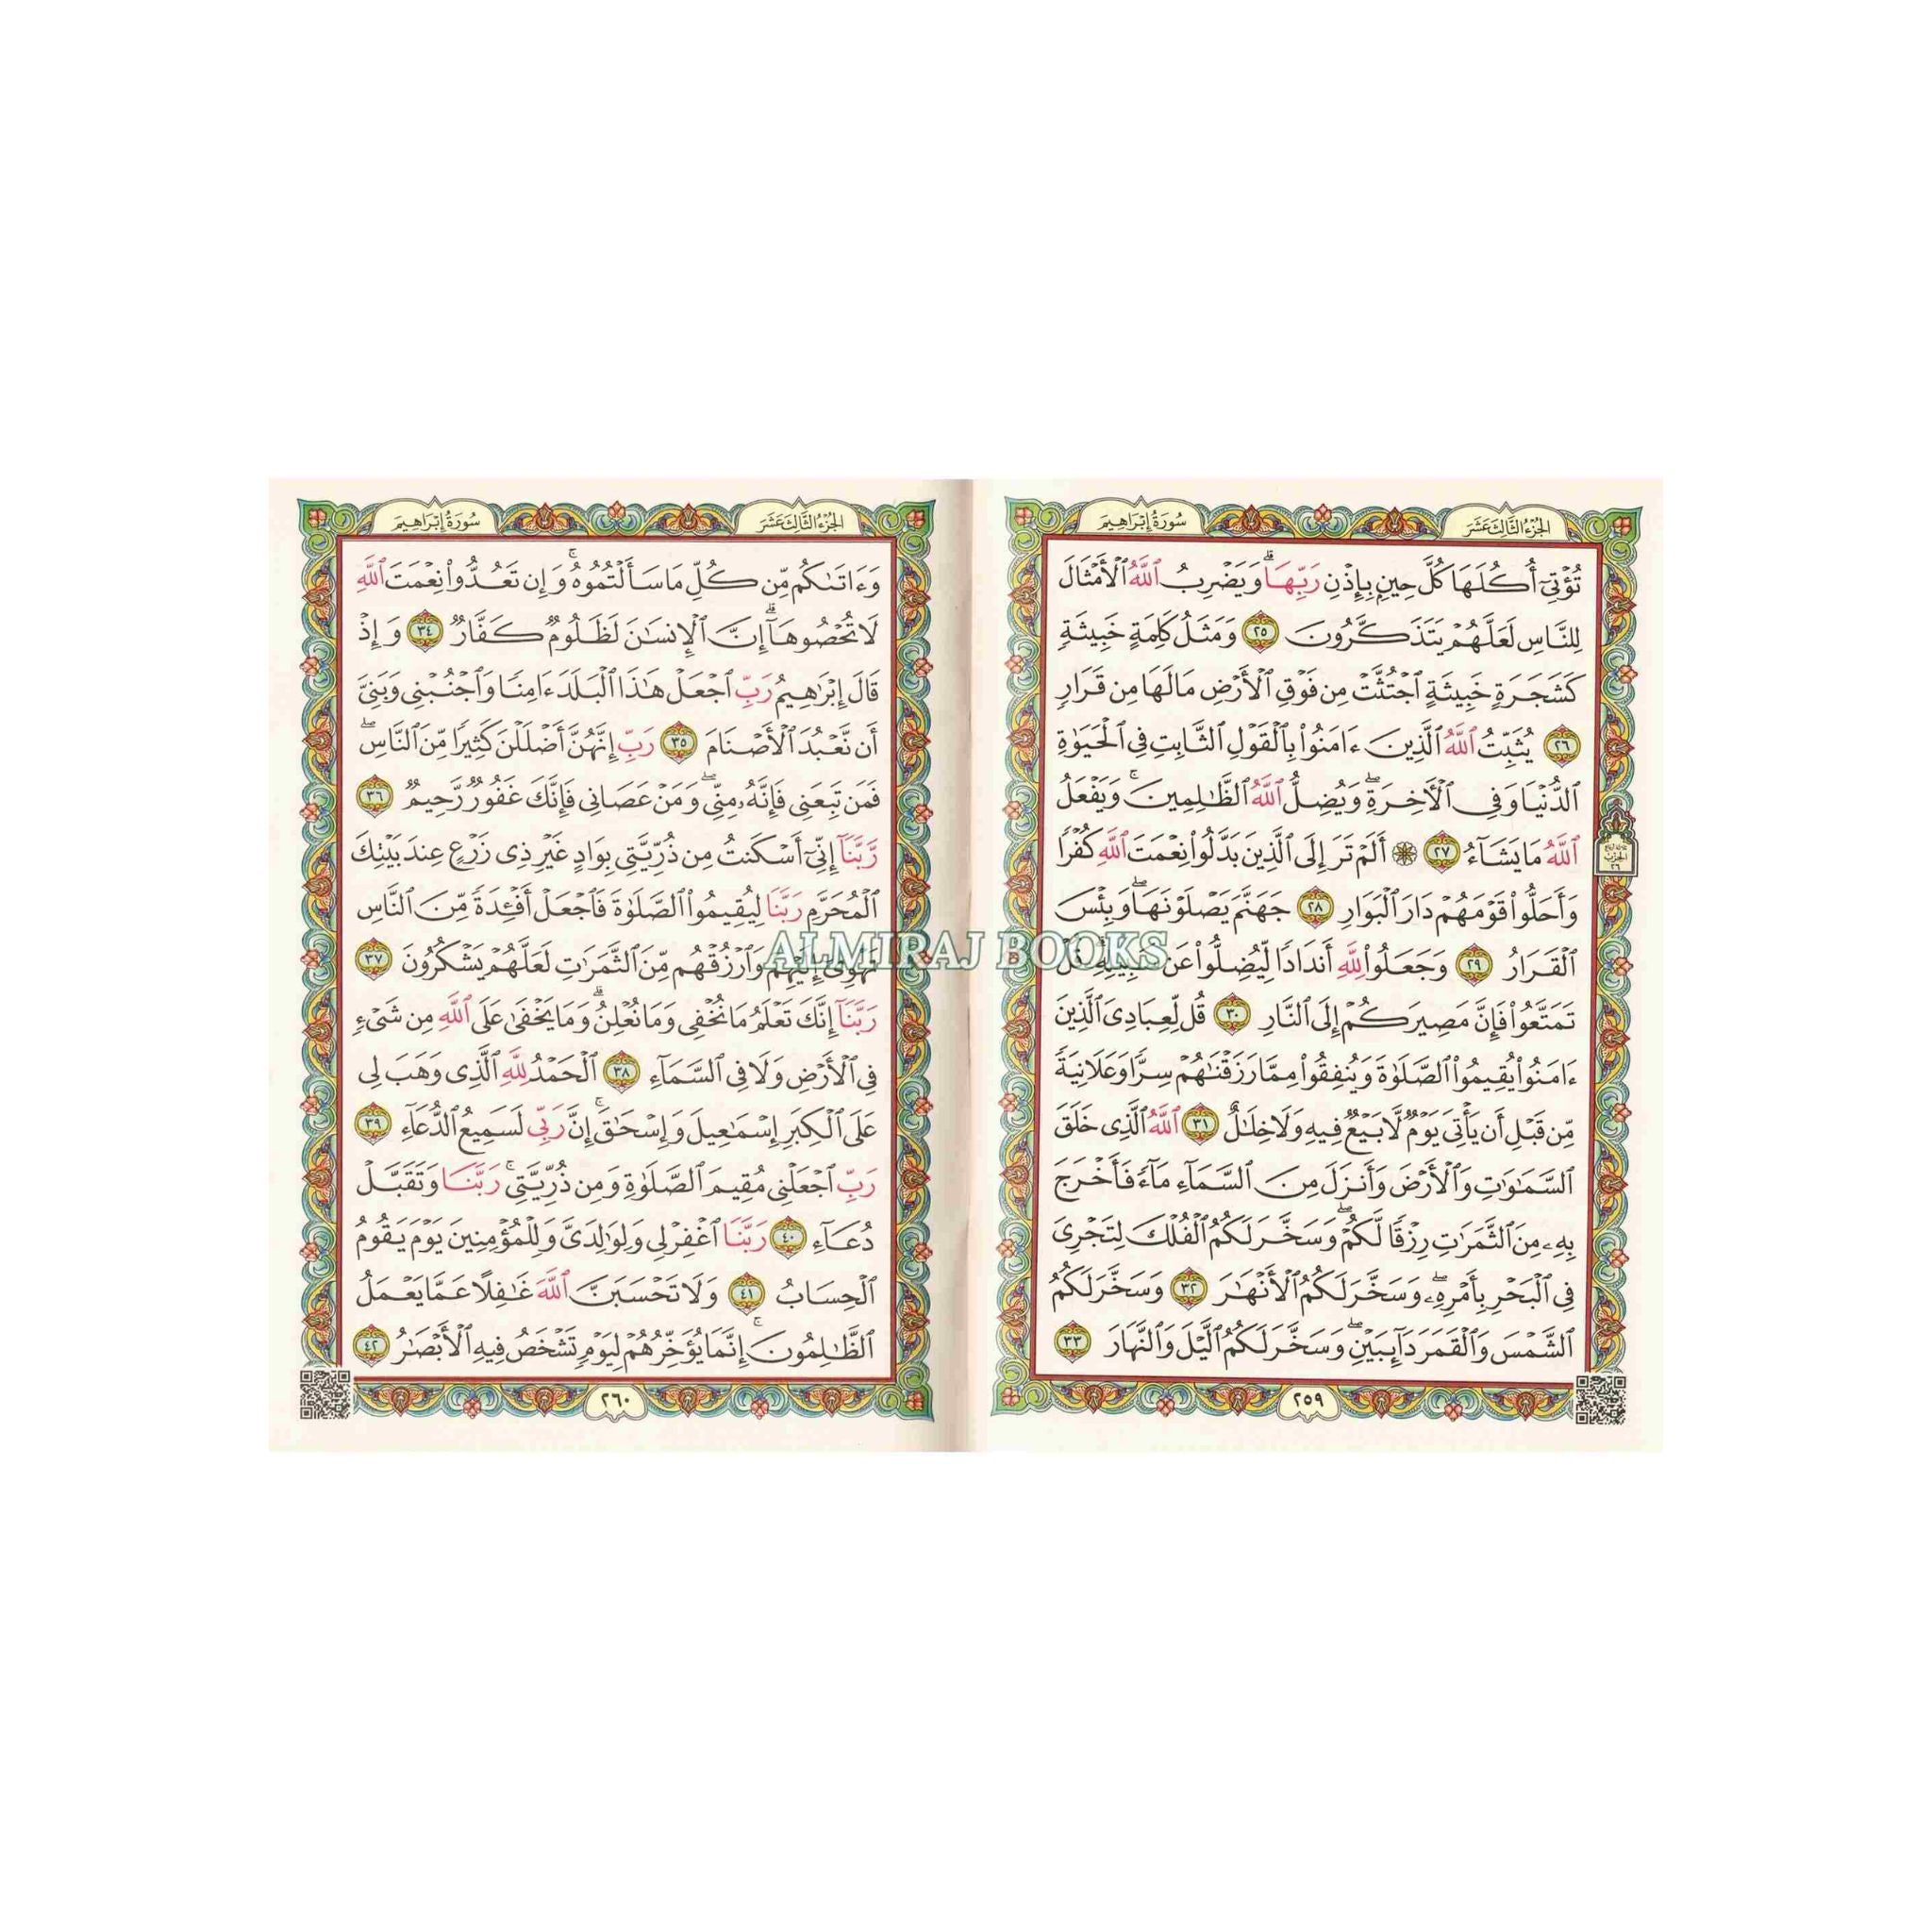 الجزء الثالث عشر
سورة إبراهيم
تُؤْتِىٓ أُكُلَهَا كُلَّ حِينٍۭ بِإِذْنِ رَبِّهَاۗ وَيَضْرِبُ ٱللَّهُ ٱلْأَمْثَالَ
لِلنَّاسِ لَعَلَّهُمْ يَتَذَكَّرُونَ ٢٥ وَمَثَلُ كَلِمَةٍ خَبِيثَةٍ
كَشَجَرَةٍ خَبِيثَةٍ ٱجْتُثَّتْ مِن فَوْقِ ٱلْأَرْضِ مَا لَهَا مِن قَرَارٍ
٢٦ يُثَبِّتُ ٱللَّهُ ٱلَّذِينَ ءَامَنُوا۟ بِٱلْقَوْلِ ٱلثَّابِتِ فِى ٱلْحَيَوٰةِ
ٱلدُّنْيَا وَفِى ٱلْأَخِرَةِۖ وَيُضِلُّ ٱللَّهُ ٱلظَّٰلِمِينَۚ وَيَفْعَلُ
ٱللَّهُ مَا يَشَآءُ ٢٧ ۞ أَلَمْ تَرَ إِلَى ٱلَّذِينَ بَدَّلُوا۟ نِعْمَتَ ٱللَّهِ كُفْرًا
وَأَحَلُّوا۟ قَوْمَهُمْ دَارَ ٱلْبَوَارِ ٢٨ جَهَنَّمَ يَصْلَوْنَهَاۖ وَبِئْسَ
ٱلْقَرَارُ ٢٩ وَجَعَلُوا۟ لِلَّهِ أَندَادًا لِّيُضِلُّوا۟ عَن سَبِيلِهِۦۗ قُلْ
تَمَتَّعُوا۟ فَإِنَّ مَصِيرَكُمْ إِلَى ٱلنَّارِ ٣٠ قُل لِّعِبَادِىَ ٱلَّذِينَ
ءَامَنُوا۟ يُقِيمُوا۟ ٱلصَّلَوٰةَ وَيُنفِقُوا۟ مِمَّا رَزَقْنَٰهُمْ سِرًّا وَعَلَانِيَةً
مِّن قَبْلِ أَن يَأْتِىَ يَوْمٌ لَّا بَيْعٌ فِيهِ وَلَا خِلَٰلٌ ٣١ ٱللَّهُ ٱلَّذِى خَلَقَ
ٱلسَّمَٰوَٰتِ وَٱلْأَرْضَ وَأَنزَلَ مِنَ ٱلسَّمَآءِ مَآءً فَأَخْرَجَ
بِهِۦ مِنَ ٱلثَّمَرَٰتِ رِزْقًا لَّكُمْۖ وَسَخَّرَ لَكُمُ ٱلْفُلْكَ لِتَجْرِىَ
فِى ٱلْبَحْرِ بِأَمْرِهِۦۖ وَسَخَّرَ لَكُمُ ٱلْأَنْهَٰرَ ٣٢ وَسَخَّرَ لَكُمُ
ٱلشَّمْسَ وَٱلْقَمَرَ دَآئِبَيْنِۖ وَسَخَّرَ لَكُمُ ٱلَّيْلَ وَٱلنَّهَارَ ٣٣
٢٥٩
الجزء الثالث عشر
سورة إبراهيم
وَءَاتَىٰكُم مِّن كُلِّ مَا سَأَلْتُمُوهُۚ وَإِن تَعُدُّوا۟ نِعْمَتَ ٱللَّهِ
لَا تُحْصُوهَآۗ إِنَّ ٱلْإِنسَٰنَ لَظَلُومٌ كَفَّارٌ ٣٤ وَإِذْ
قَالَ إِبْرَٰهِيمُ رَبِّ ٱجْعَلْ هَٰذَا ٱلْبَلَدَ ءَامِنًا وَٱجْنُبْنِى وَبَنِىَّ
أَن نَّعْبُدَ ٱلْأَصْنَامَ ٣٥ رَبِّ إِنَّهُنَّ أَضْلَلْنَ كَثِيرًا مِّنَ ٱلنَّاسِۖ
فَمَن تَبِعَنِى فَإِنَّهُۥ مِنِّىۖ وَمَنْ عَصَانِى فَإِنَّكَ غَفُورٌ رَّحِيمٌ ٣٦
رَّبَّنَآ إِنِّىٓ أَسْكَنتُ مِن ذُرِّيَّتِى بِوَادٍ غَيْرِ ذِى زَرْعٍ عِندَ بَيْتِكَ
ٱلْمُحَرَّمِ رَبَّنَا لِيُقِيمُوا۟ ٱلصَّلَوٰةَ فَٱجْعَلْ أَفْـِٔدَةً مِّنَ ٱلنَّاسِ
تَهْوِىٓ إِلَيْهِمْ وَٱرْزُقْهُم مِّنَ ٱلثَّمَرَٰتِ لَعَلَّهُمْ يَشْكُرُونَ ٣٧
رَبَّنَآ إِنَّكَ تَعْلَمُ مَا نُخْفِى وَمَا نُعْلِنُۗ وَمَا يَخْفَىٰ عَلَى ٱللَّهِ مِن شَىْءٍ
فِى ٱلْأَرْضِ وَلَا فِى ٱلسَّمَآءِ ٣٨ ٱلْحَمْدُ لِلَّهِ ٱلَّذِى وَهَبَ لِى
عَلَى ٱلْكِبَرِ إِسْمَٰعِيلَ وَإِسْحَٰقَۚ إِنَّ رَبِّى لَسَمِيعُ ٱلدُّعَآءِ ٣٩
رَبِّ ٱجْعَلْنِى مُقِيمَ ٱلصَّلَوٰةِ وَمِن ذُرِّيَّتِىۚ رَبَّنَا وَتَقَبَّلْ
دُعَآءِ ٤٠ رَبَّنَا ٱغْفِرْ لِى وَلِوَٰلِدَىَّ وَلِلْمُؤْمِنِينَ يَوْمَ يَقُومُ
ٱلْحِسَابُ ٤١ وَلَا تَحْسَبَنَّ ٱللَّهَ غَٰفِلًا عَمَّا يَعْمَلُ
ٱلظَّٰلِمُونَۚ إِنَّمَا يُؤَخِّرُهُمْ لِيَوْمٍ تَشْخَصُ فِيهِ ٱلْأَبْصَٰرُ ٤٢
٢٦٠
ALMIRAJ BOOKS